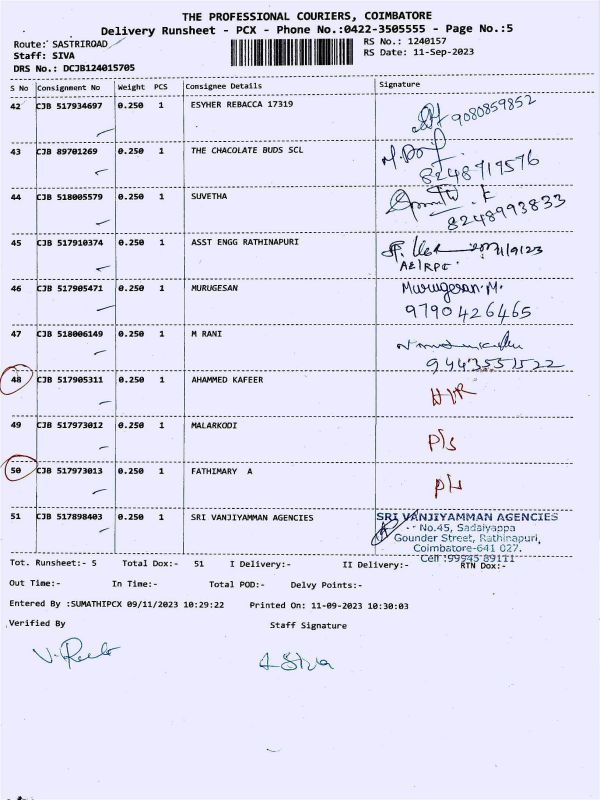 THE PROFESSIONAL COURIERS, COIMBATORE
Delivery Runsheet - PCX - Phone No.:0422-3505555 - Page No.:5
Route: SASTRIROAD
RS No.: 1240157
Staff: SIVA
RS Date: 11-Sep-2023
DRS No.: DCJB124015705
S No Consignment No Weight PCS Consignee Details Signature
42 CJB 517934697 0.250 1 ESYHER REBACCA 17319
9080859852
43 CJB 89701269 0.250 1 THE CHACOLATE BUDS SCL
8248719576
44 CJB 518005579 0.250 1 SUVETHA
8248993833
45 CJB 517910374 0.250 1 ASST ENGG RATHINAPURI
11/9/23
AE/RPE.
46 CJB 517905471 0.250 1 MURUGESAN Murugesan.M.
9790426465
47 CJB 518006149 0.250 1 M RANI
9443551522
48 CJB 517905311 0.250 1 AHAMMED KAFEER
49 CJB 517973012 0.250 1 MALARKODI P/s
50 CJB 517973013 0.250 1 FATHIMARY A
51 CJB 517898403 0.250 1 SRI VANJIYAMMAN AGENCIES SRI VANJIYAMMAN AGENCIES
No.45, Sadaiyappa
Gounder Street, Rathinapuri,
Coimbatore-641 027.
Cell :99945 89111
Tot. Runsheet:- 5 Total Dox:- 51 I Delivery:- II Delivery:- RTN Dox:-
Out Time:- In Time:- Total POD:- Delvy Points:-
Entered By :SUMATHIPCX 09/11/2023 10:29:22 Printed On: 11-09-2023 10:30:03
Verified By Staff Signature
A. Siva